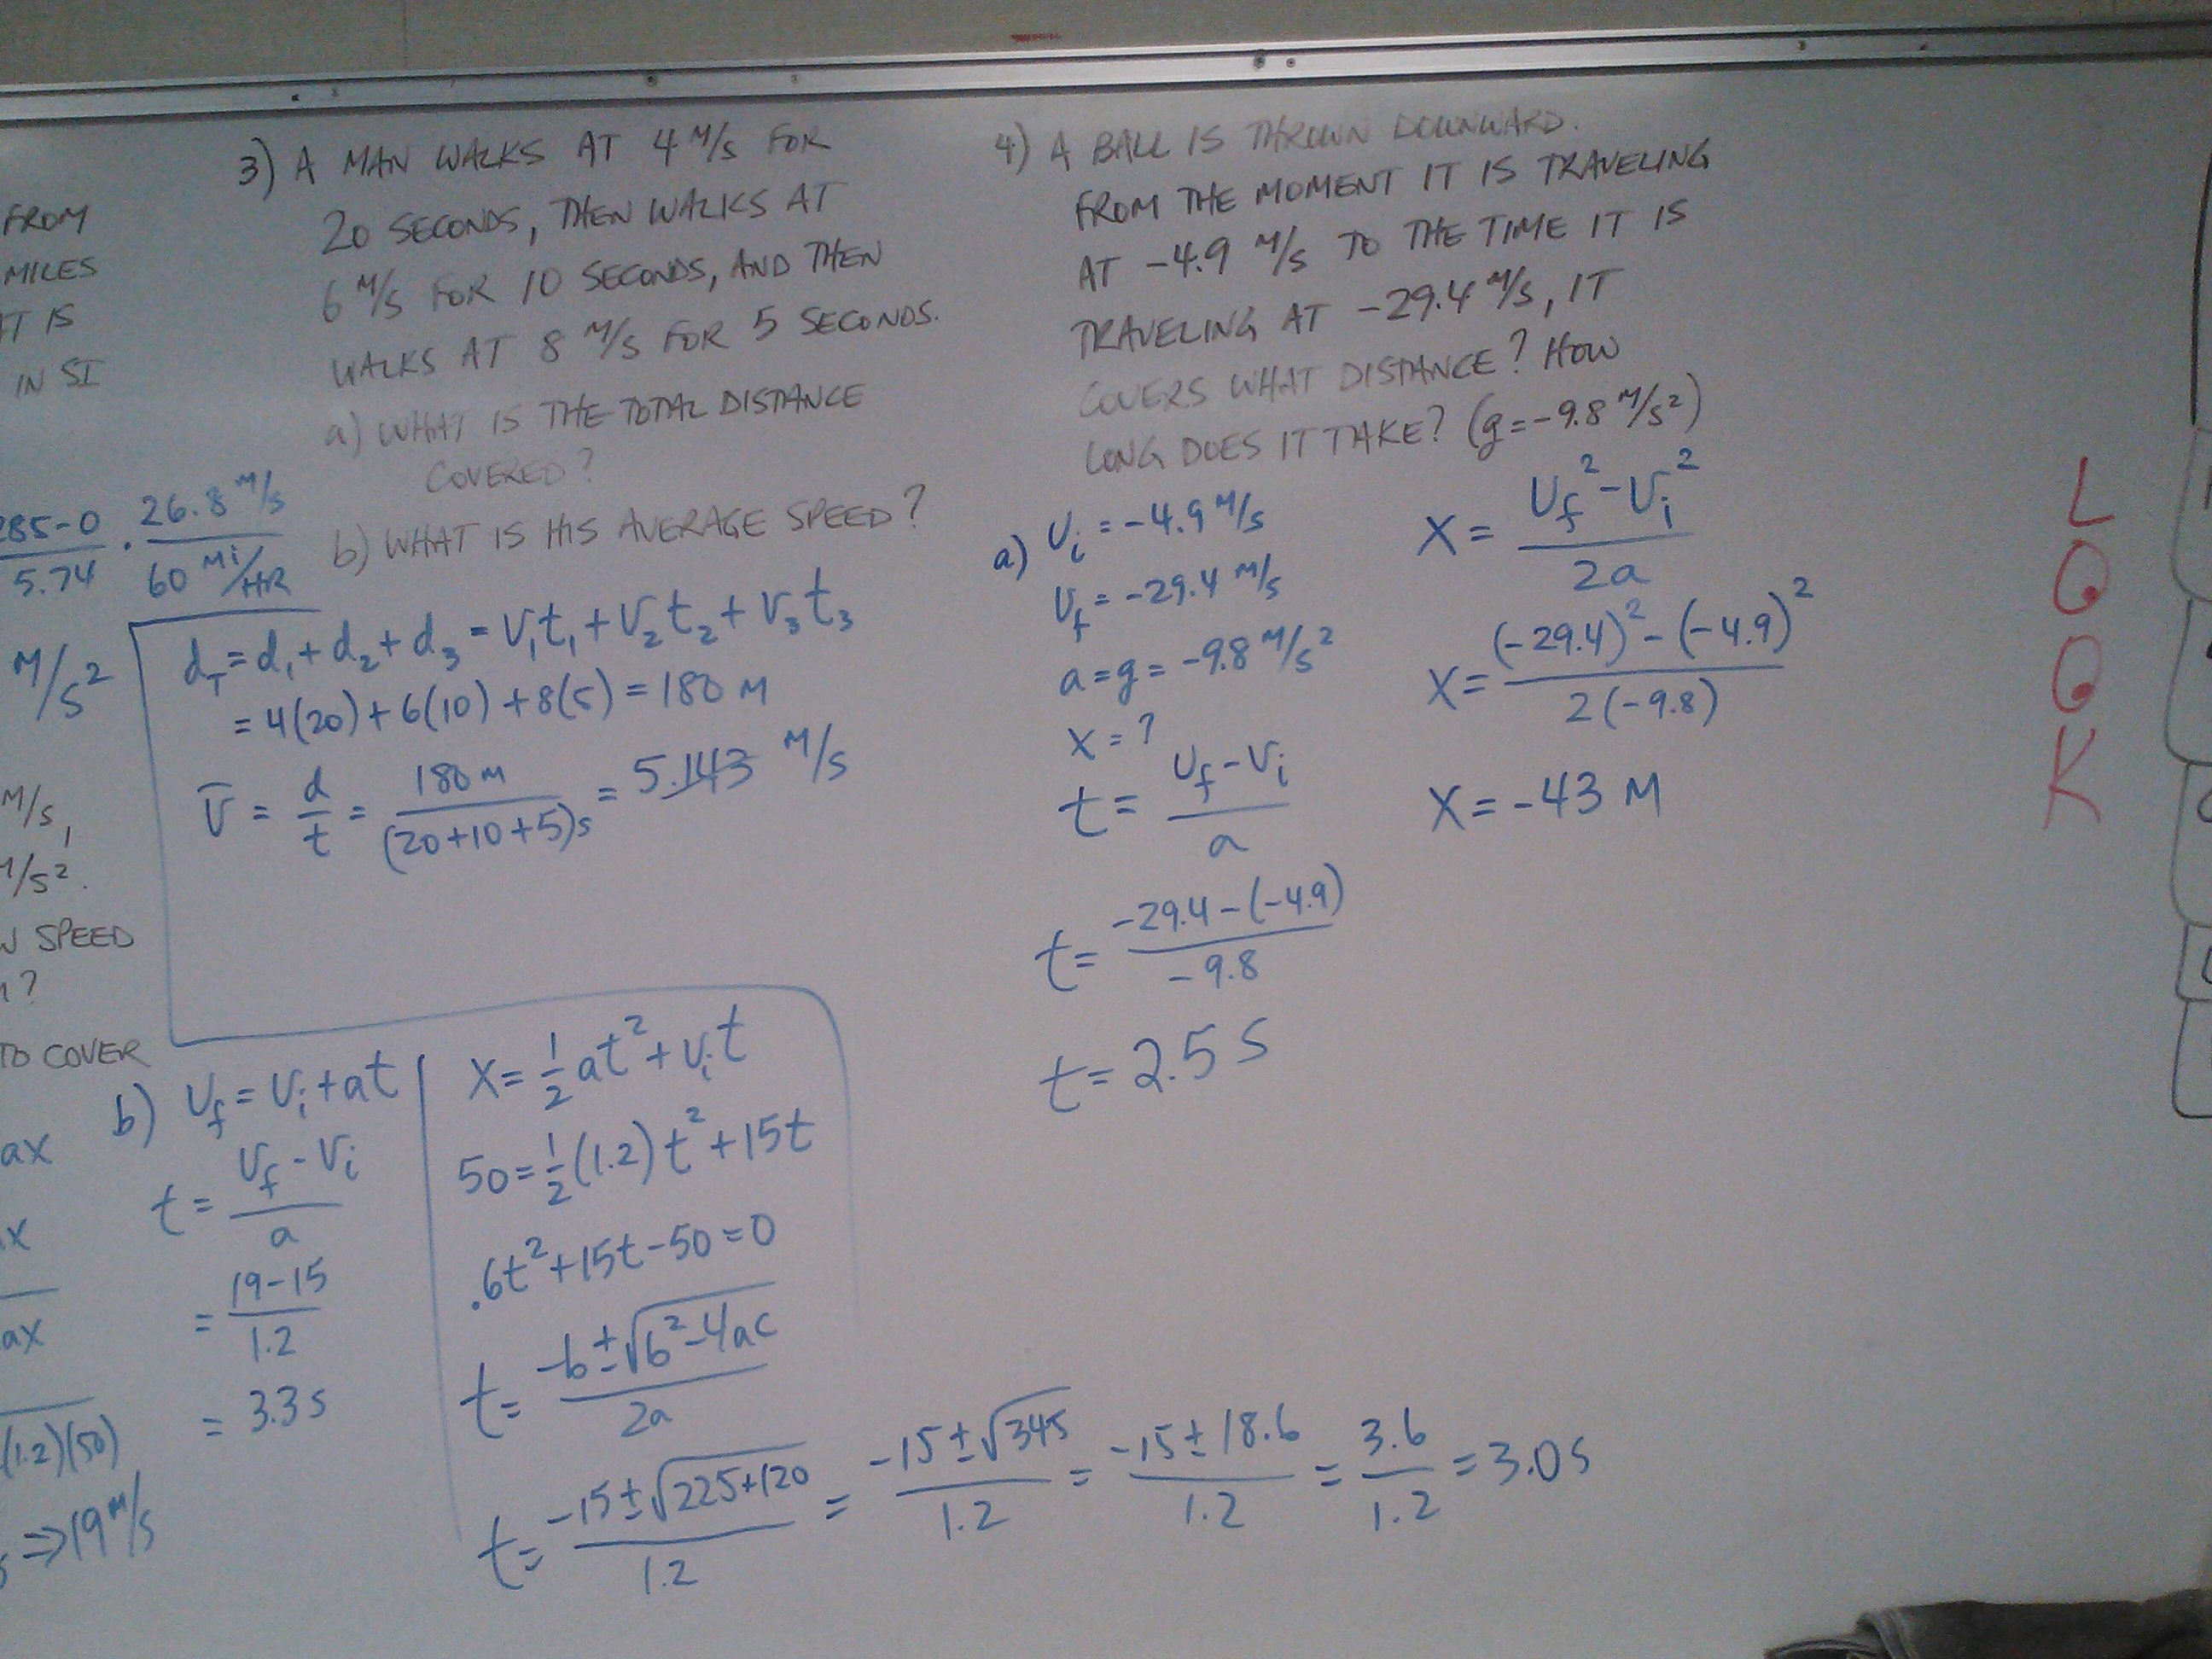 FROM
MILES
AT IS
IN SI
285-0 / 5.74 · 26.8 M/S / 60 MI/HR
M/S²
M/S,
M/S².
SPEED
?
TO COVER
ax
x
ax
(1.2)(50)
⇒ 19 M/S
3) A MAN WALKS AT 4 M/S FOR
20 SECONDS, THEN WALKS AT
6 M/S FOR 10 SECONDS, AND THEN
WALKS AT 8 M/S FOR 5 SECONDS.
a) WHAT IS THE TOTAL DISTANCE
COVERED?
b) WHAT IS HIS AVERAGE SPEED?
d_T = d₁ + d₂ + d₃ = V₁t₁ + V₂t₂ + V₃t₃
= 4(20) + 6(10) + 8(5) = 180 M
V̅ = d/t = 180 M / (20+10+5)s = 5.143 M/S
b) V_f = V_i + at
t = (V_f - V_i) / a
= (19-15) / 1.2
= 3.3 s
X = ½at² + V_i t
50 = ½(1.2)t² + 15t
.6t² + 15t - 50 = 0
t = (-b ± √(b² - 4ac)) / 2a
t = (-15 ± √(225+120)) / 1.2 = (-15 ± √345) / 1.2 = (-15 ± 18.6) / 1.2 = 3.6 / 1.2 = 3.0 s
4) A BALL IS THROWN DOWNWARD.
FROM THE MOMENT IT IS TRAVELING
AT -4.9 M/S TO THE TIME IT IS
TRAVELING AT -29.4 M/S, IT
COVERS WHAT DISTANCE? HOW
LONG DOES IT TAKE? (g = -9.8 M/S²)
a) V_i = -4.9 M/S
V_f = -29.4 M/S
a = g = -9.8 M/S²
X = ?
t = (V_f - V_i) / a
t = (-29.4 - (-4.9)) / -9.8
t = 2.5 S
X = (V_f² - V_i²) / 2a
X = ((-29.4)² - (-4.9)²) / 2(-9.8)
X = -43 M
LOOK